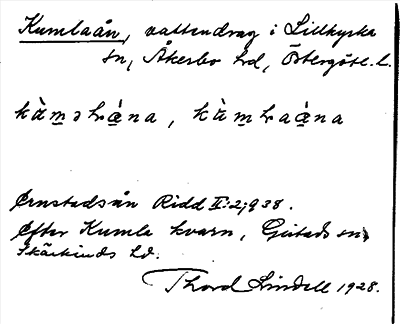 Kumlaån, vattendrag i Lillkyrka
sn, Åkerbo hd, Östergötl. l.
Ørnstadsån Ridd II:2;938.
Efter Kumla kvarn, Gistads sn,
Skärkinds hd.
Thord Lindell 1928.